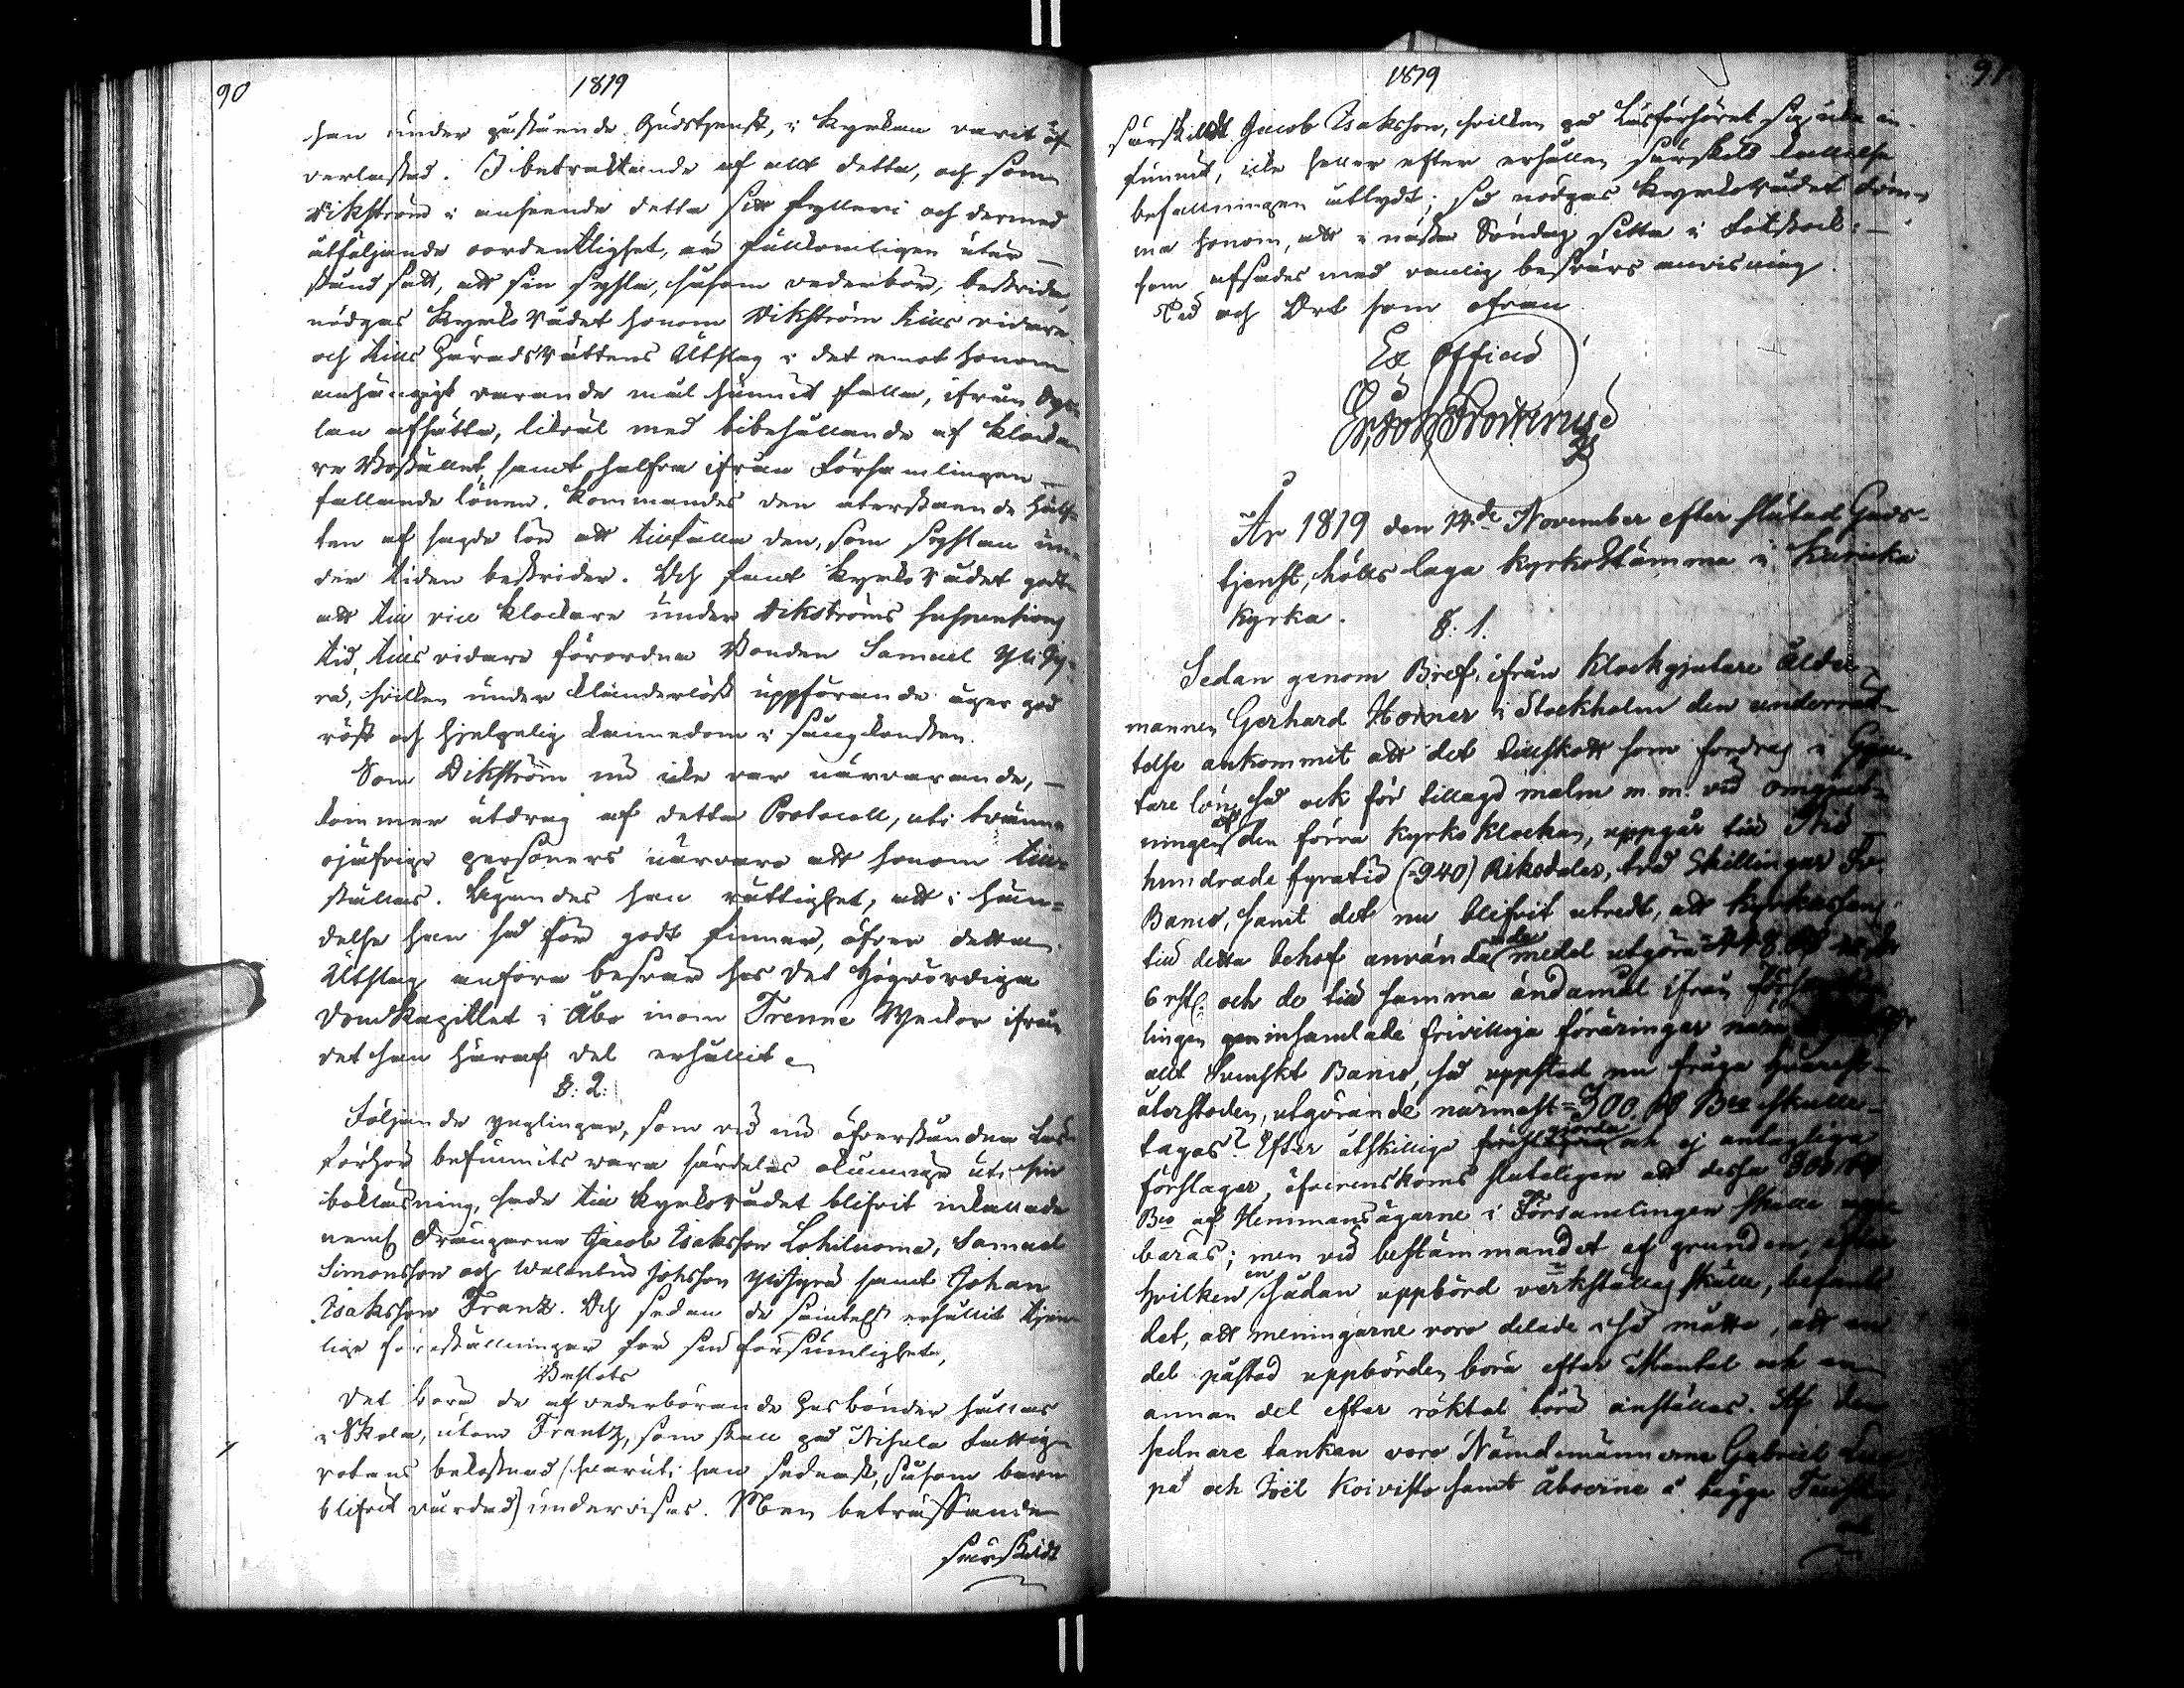 90
1819
han under påstående Gudstjenst, i Kyrkan varit öf
verlastad. I betraktande af allt detta, och som
Wikström i anseende detta sitt fylleri och dermed
åtföljande oordentlighet, är fullkomligen utur
stånd satt, att sin syssla, såsom vederbör, bestrida,
nödgas Kyrko Rådet honom Wikström tills vidare
och tills HäradsRättens Utslag i det emot honom
anhängigt varande mål hunnit falla, ifrån Sys-
lan afsätta, likväl med bibehållande af Klocka
re Bostället, samt halfva ifrån Församlingen
fallande lönen. Kommandes den återstående hälf-
ten af sagde lön att tillfalla den, som sysslan un-
der tiden bestrider. Och fant Kyrko Rådet godt
att till vice Klockare under Wikströms suspensions
tid, tills vidare förordna Bonden Samuel Yli
rå, hvilken under klanderlöst uppförande äger god
röst och hjelpelig kännedom i sångkonsten.
Som Wikström nu icke var närvarande,
kommer utdrag af detta Protocoll, uti tvänne
ojäfvige personers närvaro att honom till-
ställas. Ägandes han rättighet, att i hän-
delse han så för godt finner, öfver detta
Utslag anföra besvär hos Det Högvördiga
Domkapitlet i Åbo inom Trenne Weckor ifrån
det han häraf del erhållit.
§. 2.
Följande ynglingar, som vid nu öfverståndna Läs-
förhör befunnits vara särdeles okunnige uti sin
bokläsning, hade till Kyrkorådet blifvit inkallade
neml. Drängarne Jacob Isaksson Lohiluoma, Samuel
Simonsson och Walentin Johsson samt Johan
Isaksson Frantz. Och sedan de samtels erhållit tjen-
lige föreställningar för sin försumlighet,
Beslöts
Det borde de af vederbörande Husbönder hållas
i Skola, utom Frantz, som skall på Nisula Fattig-
rotans bekostnad (hvaruti han sednast, såsom barn
blifvit vårdad) undervisas. Men beträffande
särskildt
1819
91
särskildt Jacob Isaksson, hvilken på Läsförhöret sig icke in-
funnit, icke heller efter erhållen särskild kallelse
befallningen åtlydt; så nödgas KyrkoRådet döm-
ma honom, att i nästa Söndag sitta i Fotstock:
som afsades med vanlig besvärs anvisning.
Tid och Ort som ofvan
Ex officio
År 1819 den 14de November efter slutad Guds-
tjenst, hölls laga KyrkoStämma i Kauricka
Kyrka.
§. 1.
Sedan genom Bref ifrån Klockgjutare Ålder-
mannen Gerhard Horner i Stockholm den underrät-
telse ankommit att det tillskott som fordras i Gju-
tare lön, så ock för tillagd malm m. m. vid omgjut-
ningen af den förra Kyrko Klockan, uppgår till Nio
hundrade fyratio (=940) Riksdaler, två Skillingar Sv.
Banco, samt det nu blifvit utredt, att Kyrkassans
till detta behof använda medel utgöra
6 rst. och de till samma ändamål ifrån Försam-
lingen insamlade frivilliga föräringar
allt Svenskt Banco, så uppstod nu fråga hvarest
återstoden, utgörande närmast =300 Rd Bco skulle
tagas? Efter åtskillige gjorda och ej antagliga
förslager, öfverenskoms sluteligen att dessa 300 Rd
Bco af Hemmansägarne i Församlingen skulle upp-
bäras; men vid bestämmandet af grunden, efter
hvilken en sådan uppbörd verkställas skulle, befants
det, att meningarne voro delade i så måtto, att en
del påstod uppbörden böra efter Mantal och en
annan del efter röktal böra anställas. Af den
sednare tankan voro Nämdemännerna Gabriel
på och Joël Koivisto samt Åboerne å bägge